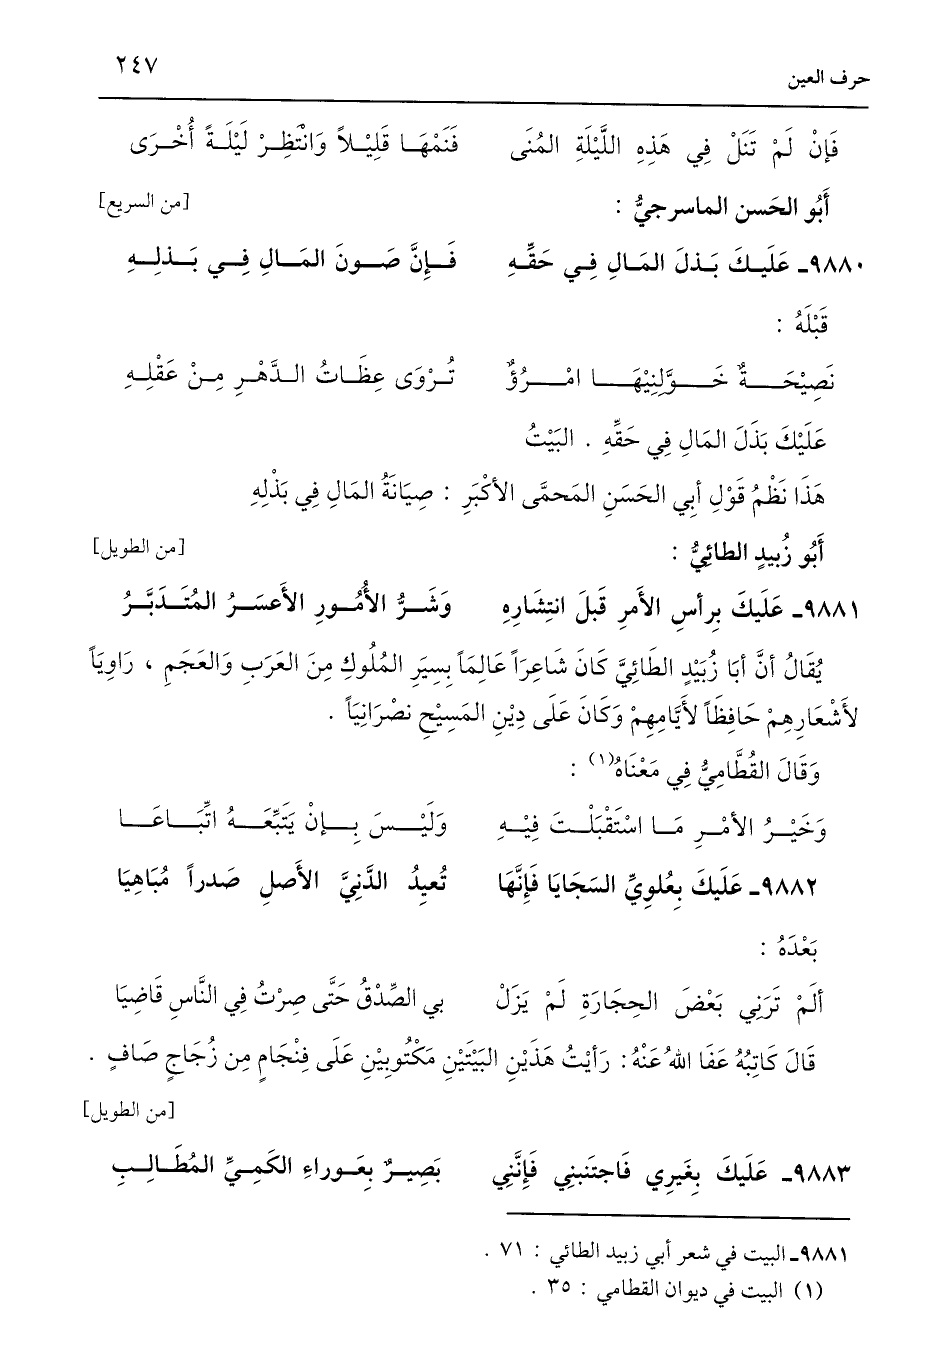 حرف العين ٢٤٧
فَإنْ لَمْ تَنَلْ فِي هَذِهِ اللَّيْلَةِ المُنَى فَنَمْهَا قَلِيْلاً وَانْتَظِرْ لَيْلَةً أُخْرَى
أَبُو الحَسن الماسرجيُّ : [من السريع]
٩٨٨٠ـ عَلَيكَ بَذلَ المَالِ فِي حَقِّهِ فَإنَّ صَونَ المَالِ فِي بَذلِهِ
قَبْلَهُ :
نَصِيْحَةٌ خَوَّلِنِيْهَا امْرُؤٌ تُرْوَى عِظَاتُ الدَّهْرِ مِنْ عَقْلِهِ
عَلَيْكَ بَذَلَ المَالِ فِي حَقِّهِ . البَيْتُ
هَذَا نَظْمُ قَوْلِ أبِي الحَسَنِ المَحمَّى الأكْبَرِ : صِيَانَةُ المَالِ فِي بَذْلِهِ
أَبُو زُبيدٍ الطائِيُّ : [من الطويل]
٩٨٨١ـ عَلَيكَ بِرأسِ الأَمرِ قَبلَ انتِشَارِهِ وَشَرُّ الأُمُورِ الأَعسَرُ المُتَدَبَّرُ
يُقَالُ أنَّ أبَا زُبَيْدٍ الطَائِيَّ كَانَ شَاعِرَاً عَالِمَاً بِسِيَرِ المُلُوكِ مِنَ العَرَبِ وَالعَجَمِ ، رَاوِيَاً
لأَشْعَارِهِمْ حَافِظَاً لأَيَّامِهِمْ وَكَانَ عَلَى دِيْنِ المَسِيْحِ نصْرَانِيَاً .
وَقَالَ القُطَّامِيُّ فِي مَعْنَاهُ(١) :
وَخَيْرُ الأمْرِ مَا اسْتَقْبَلْتَ فِيْهِ وَلَيْسَ بِإنْ يَتَبِّعَهُ اتِّبَاعَا
٩٨٨٢ـ عَلَيكَ بِعُلوِيِّ السَجَايَا فَإنَّهَا تُعيِدُ الدَّنِيَّ الأصلِ صَدراً مُبَاهِيَا
بَعْدَهُ :
ألَمْ تَرَنِي بَعْضَ الحِجَارَةِ لَمْ يَزَلْ بي الصِّدْقُ حَتَّى صِرْتُ فِي النَّاسِ قَاضِيَا
قَالَ كَاتِبُهُ عَفَا اللهُ عَنْهُ : رَأيْتُ هَذَيْنِ البَيْتَيْنِ مَكْتُوبيْنِ عَلَى فِنْجَامٍ مِن زُجَاجٍ صَافٍ .
[من الطويل]
٩٨٨٣ـ عَلَيكَ بِغَيرِي فَاجتَنبنِي فَإنَّنِي بَصِيرٌ بِعَوراءِ الكَمِيِّ المُطَالِبِ
٩٨٨١ـ البيت في شعر أبي زبيد الطائي : ٧١ .
(١) البيت في ديوان القطامي : ٣٥ .